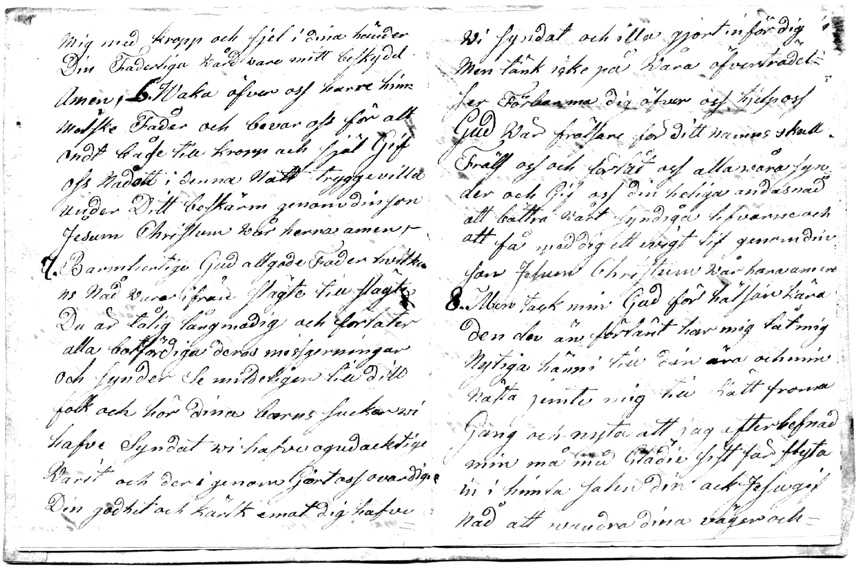 mig med kropp och sjel i dina händer
Din Faderliga Vård vare mitt beskydd
Amen, 6. Waka öfver oss herre him-
melske Fader och bevar oss för allt
ondt både till kropp och själ Gif
oss Nåd att i denna Natt tryggevilla
under Ditt beskärm genom din son
Jesum Christum vår herra amen,
7. Barmhertige Gud allgode Fader hvilke-
ns Nåd varar ifrån slägte till slägte
Du är tålig långmodig och förlåter
alla botfärdiga deras missgerningar
och synder Se mildeligen till ditt
folk och hör dina barns suckar wi
hafve Syndat wi hafve ogudacktige
Varit och der igenom Gjort oss ovardige
Din godhet och kärlek emot dig hafve
wi syndat och illa gjort inför dig
Men tänk icke på våra öfverträdel-
ser Förbarma dig öfver oss hjelp oss
Gud vår frälsare för ditt namns skull.
Fräls oss och förlåt oss alla våra syn
der och Gif oss din heliga andas nåd
att bättra vårt syndiga lefvarne och
att få med dig ett evigt lif genom din
son Jesum Christum vår hara amen
8. Men tack min Gud för hälsan kära
den du än förlänt har mig låt mig
Nyttiga hänn i till din ära och min
Nästa jemte mig till Rätt fromma
Gang och nysta att jag efter lefnad
min må med Glädie sist får flytta
in i himla salen din ack Jesu gif
Nåd att wandra dina vägar och-